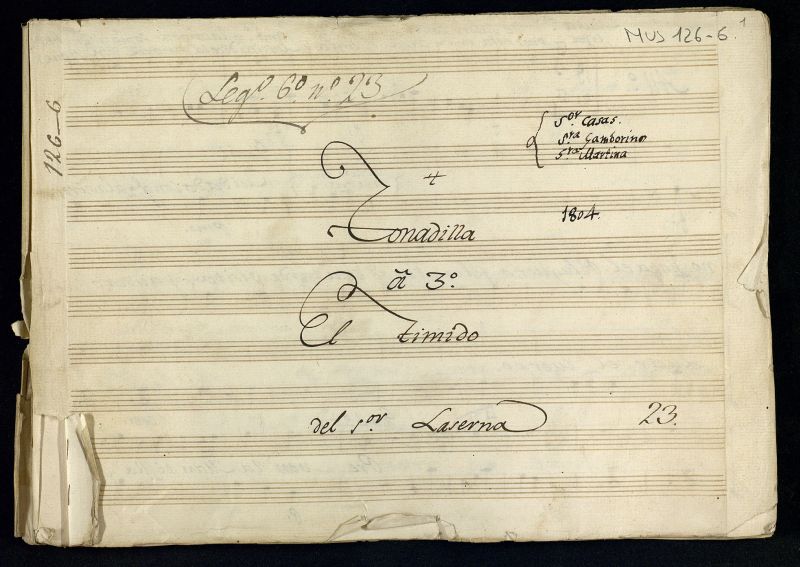 Mus 126-6.
1
Legº. 6º. nº. 23
126-6
Sor. Casas.
Sra Gamborino
Sra Martina
1804.
+
Tonadilla
â 3º.
El timido
del Sor. Laserna
23.